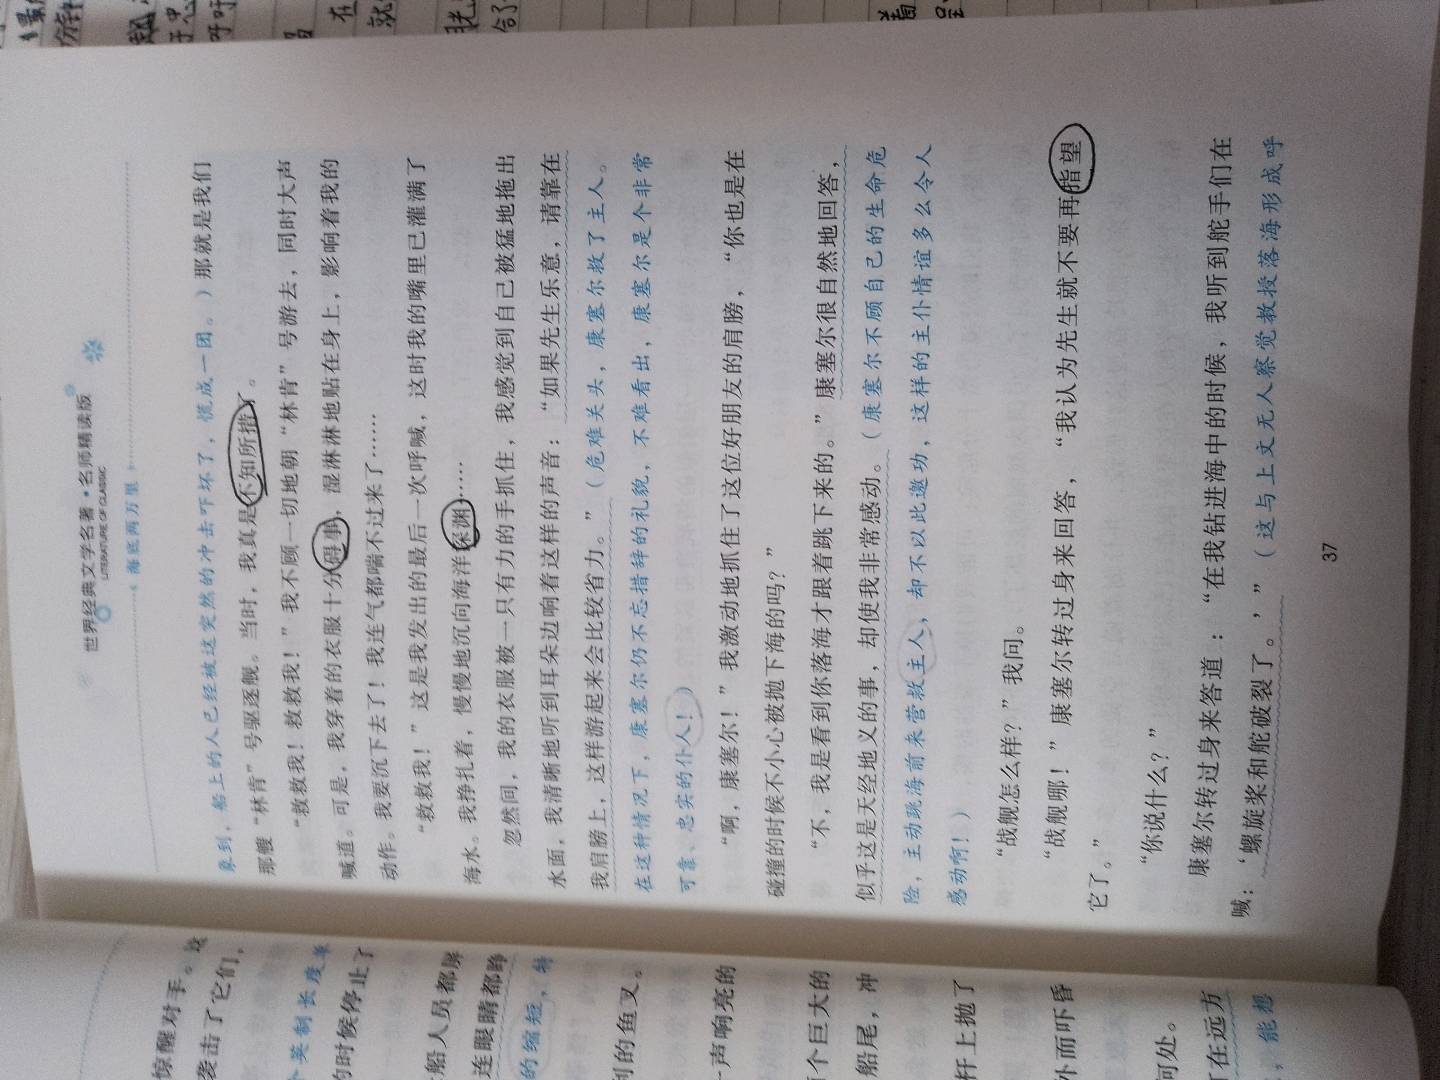 世界经典文学名著·名师精读版
LITERATURE OF CLASSIC
海底两万里
象到，船上的人已经被这突然的冲击吓坏了，慌成一团。）那就是我们
那艘“林肯”号驱逐舰。当时，我真是不知所措了。
“救救我！救救我！”我不顾一切地朝“林肯”号游去，同时大声
喊道。可是，我穿着的衣服十分碍事，湿淋淋地贴在身上，影响着我的
动作。我要沉下去了！我连气都喘不过来了……
“救救我！”这是我发出的最后一次呼喊，这时我的嘴里已灌满了
海水。我挣扎着，慢慢地沉向海洋深渊……
忽然间，我的衣服被一只有力的手抓住，我感觉到自己被猛地拖出
水面，我清晰地听到耳朵边响着这样的声音：“如果先生乐意，请靠在
我肩膀上，这样游起来会比较省力。”（危难关头，康塞尔救了主人。
在这种情况下，康塞尔仍不忘措辞的礼貌，不难看出，康塞尔是个非常
可靠、忠实的仆人！）
“啊，康塞尔！”我激动地抓住了这位好朋友的肩膀，“你也是在
碰撞的时候不小心被抛下海的吗？”
“不，我是看到你落海才跟着跳下来的。”康塞尔很自然地回答，
似乎这是天经地义的事，却使我非常感动。（康塞尔不顾自己的生命危
险，主动跳海前来营救主人，却不以此邀功，这样的主仆情谊多么令人
感动啊！）
“战舰怎么样？”我问。
“战舰哪！”康塞尔转过身来回答，“我认为先生就不要再指望
它了。”
“你说什么？”
康塞尔转过身来答道：“在我钻进海中的时候，我听到舵手们在
喊：‘螺旋桨和舵破裂了。’”（这与上文无人察觉教授落海形成呼
37
惊醒对手。
袭击了它们，
英制长度单
的时候停止了
船人员都屏
连眼睛都睁
的缩短，特
利的鱼叉。
一声响亮的
个巨大的
船尾，冲
杆上抛了
外而吓昏
何处。
在远方
，能想